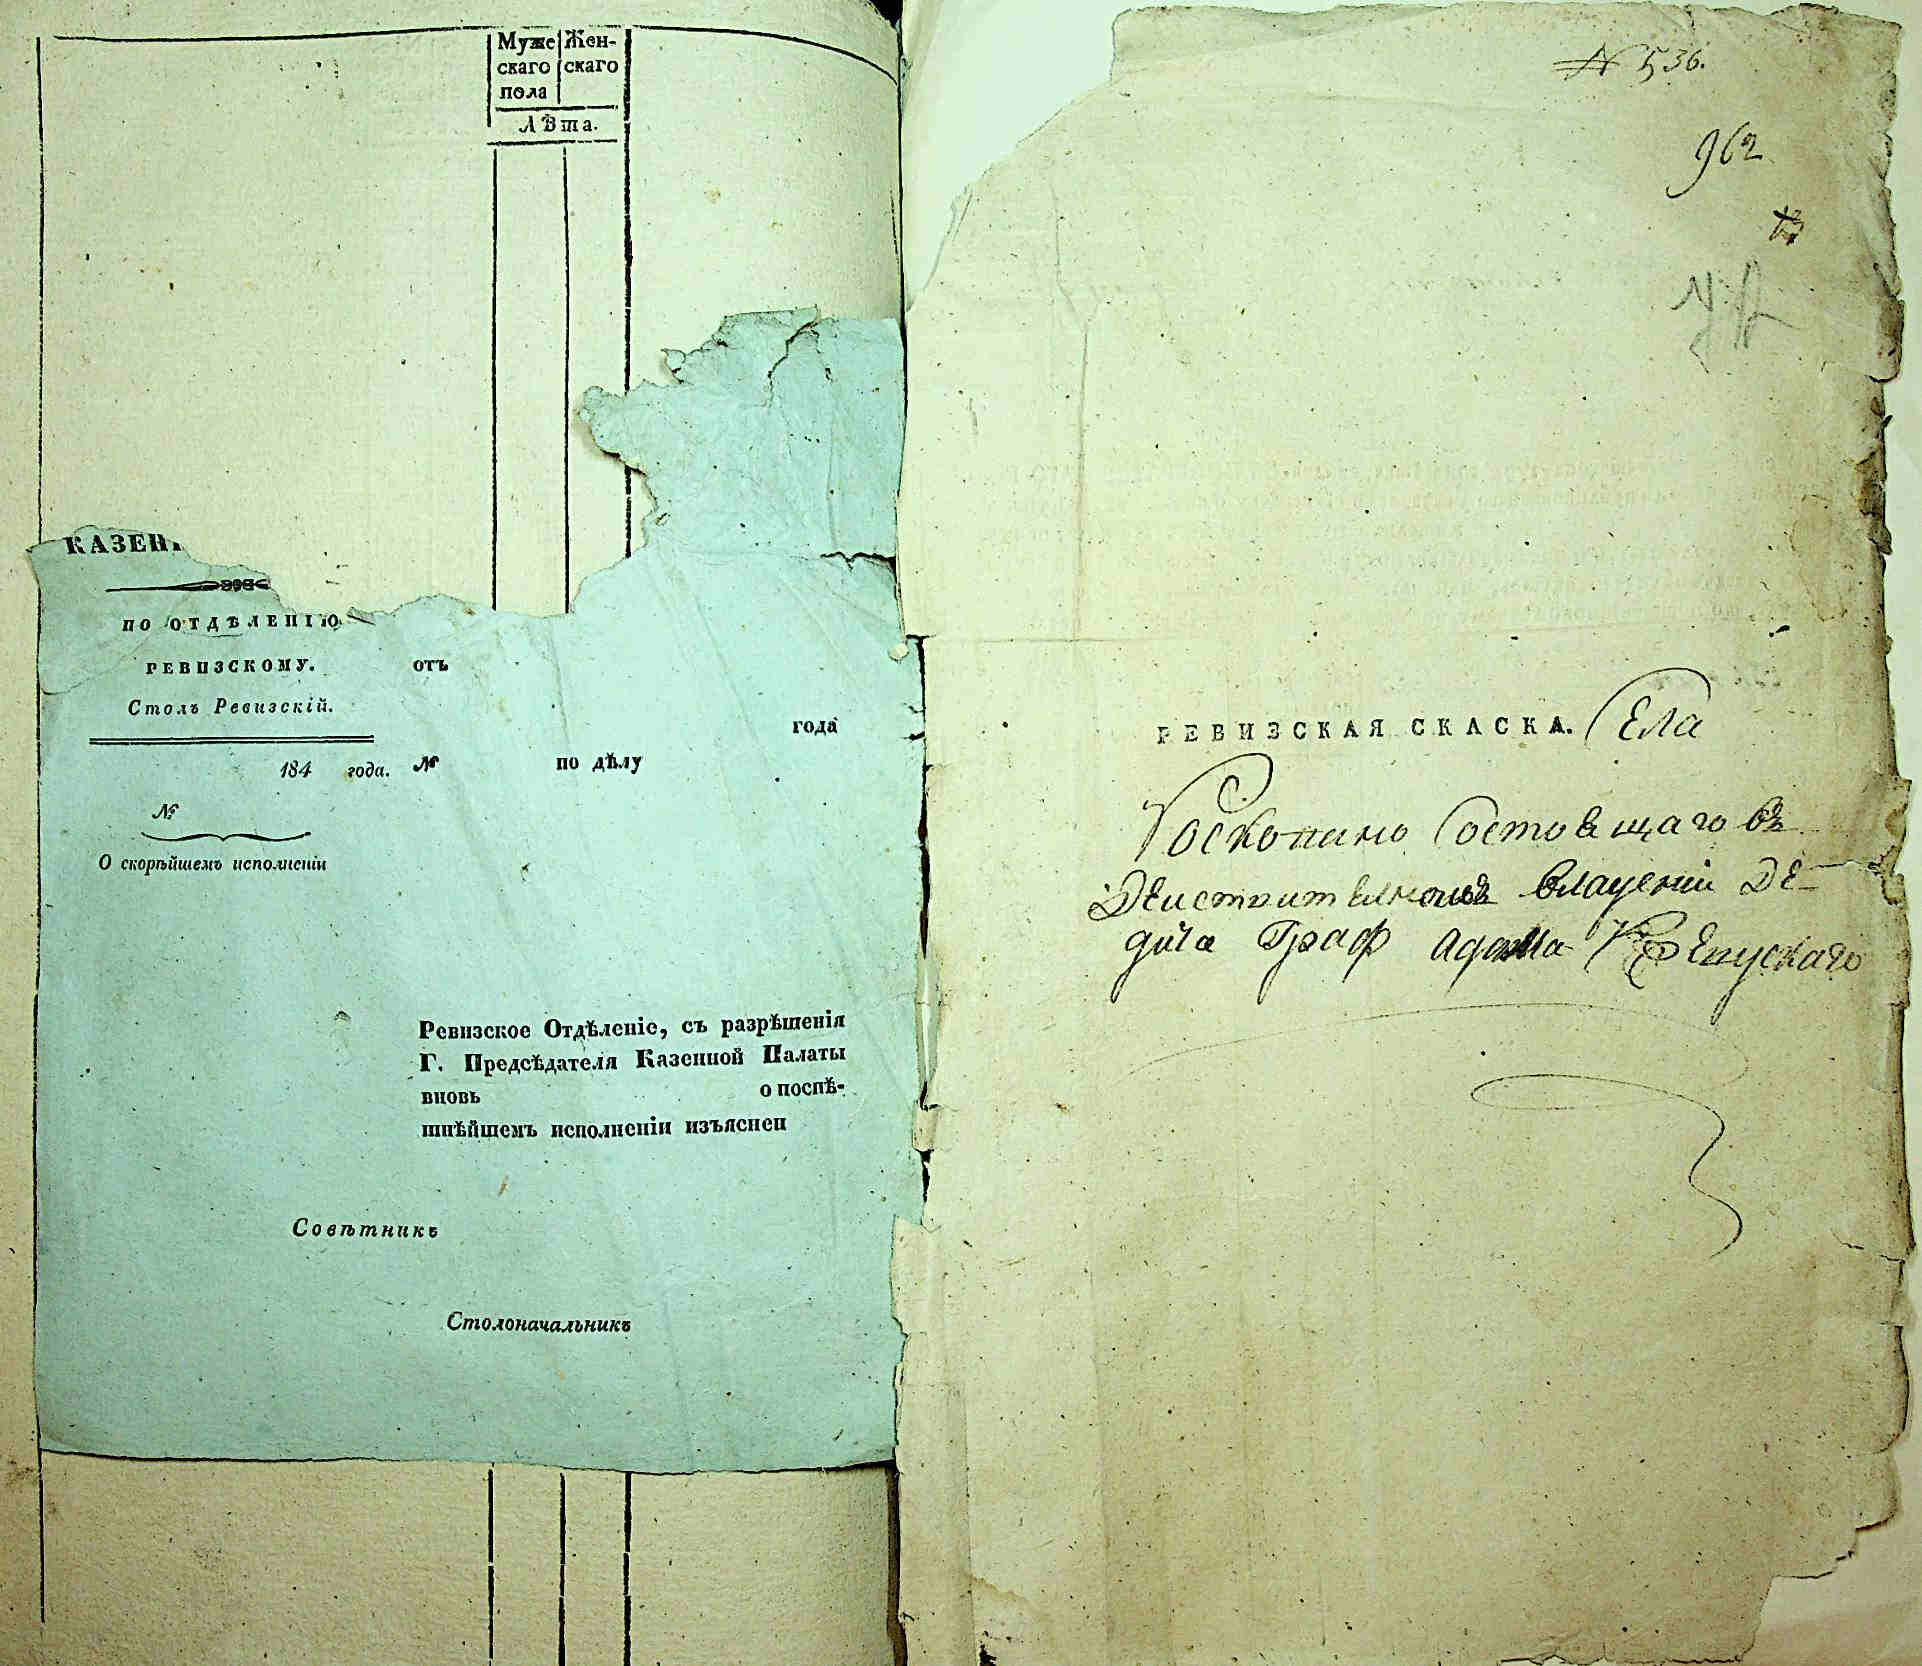 Муже Жен-
скаго скаго
пола
Лѣта.
КАЗЕНН
ПО ОТДѢЛЕНІЮ
РЕВИЗСКОМУ.
Столъ Ревизскій.
184 года.
№
О скорѣйшемъ исполненіи
отъ
года
№ по дѣлу
Ревизское Отдѣленіе, съ разрѣшенія
Г. Предсѣдателя Казенной Палаты
вновь о поспѣ-
шнѣйшемъ исполненіи изъяснен
Совѣтникъ
Столоначальникъ
№ 536.
962
РЕВИЗСКАЯ СКАСКА. Села
состоящаго въ
владении де-
дича Граф адама